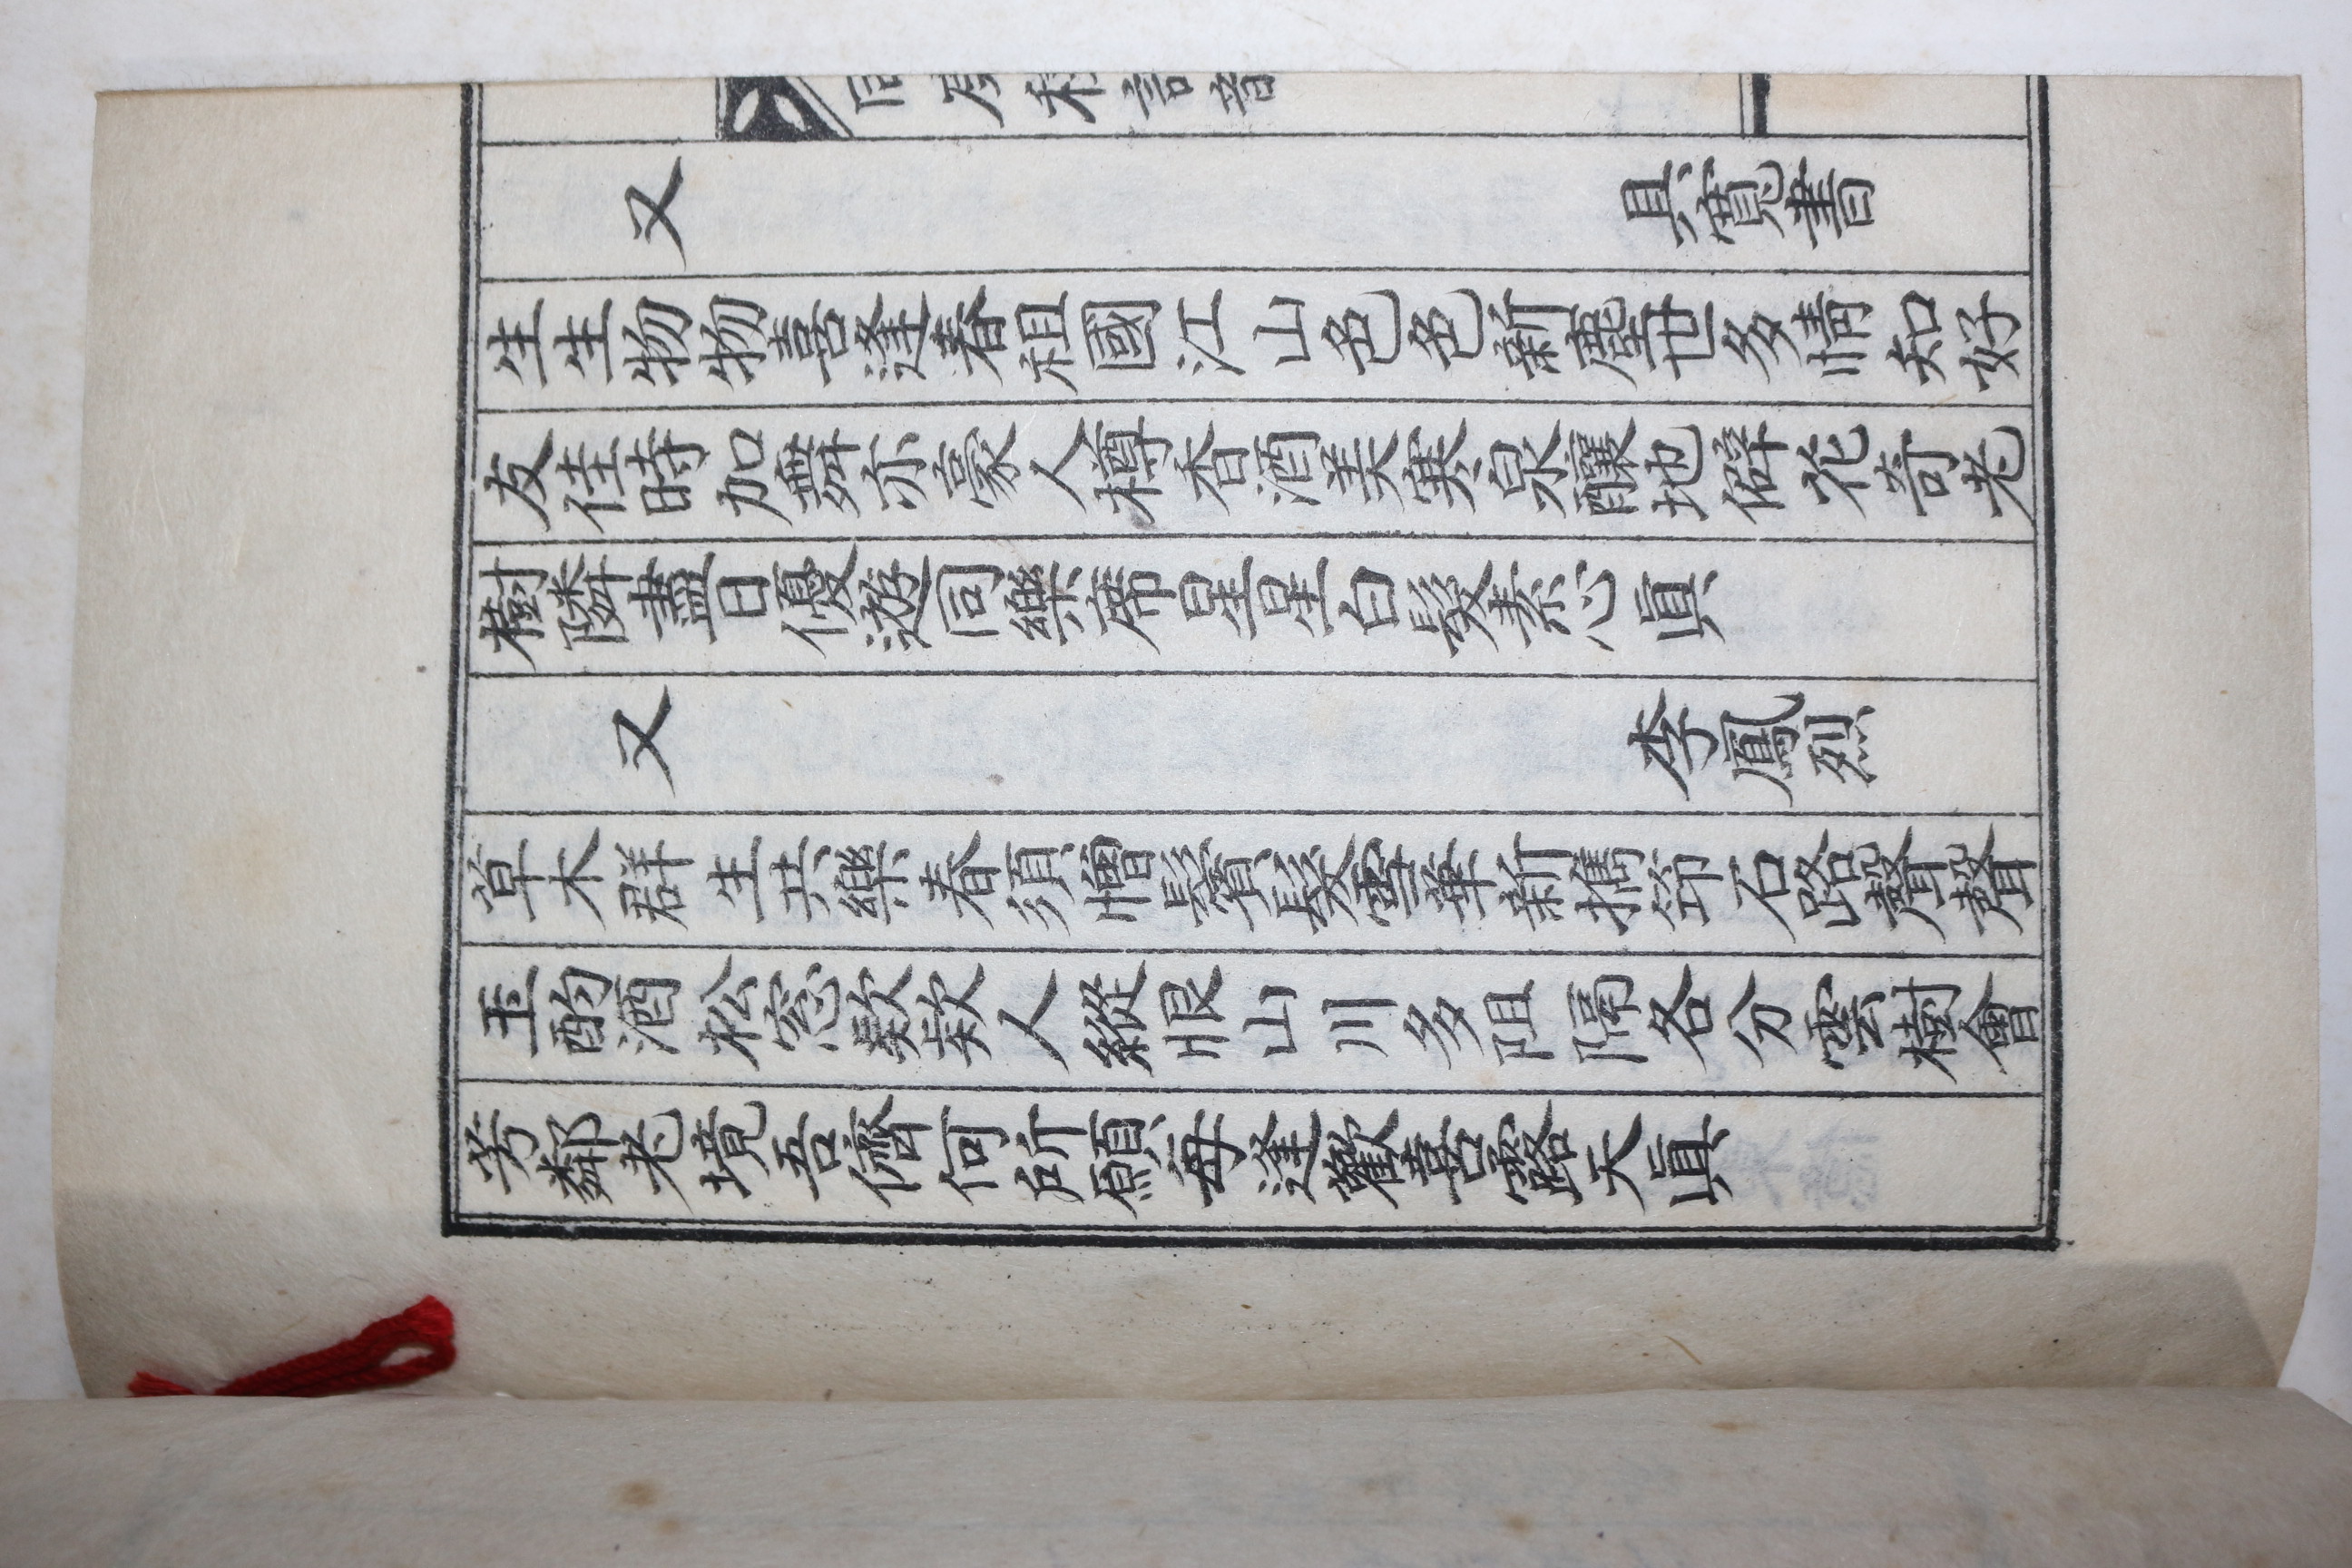 又 具寬書
生生物物喜逢春祖國江山色色新塵世多情知好
友佳時加舞亦豪人樽香酒美寒泉釀地僻花奇老
樹隣盡日優遊同樂席星星白髮素心眞
又 李鳳烈
草木群生共樂春須憎鬢髮雪華新擕笻石路聲聲
玉酌酒松窓欵欵人縱恨山川多阻隔各分雲樹會
芳鄰老境吾儕何所願每逢歡喜露天眞